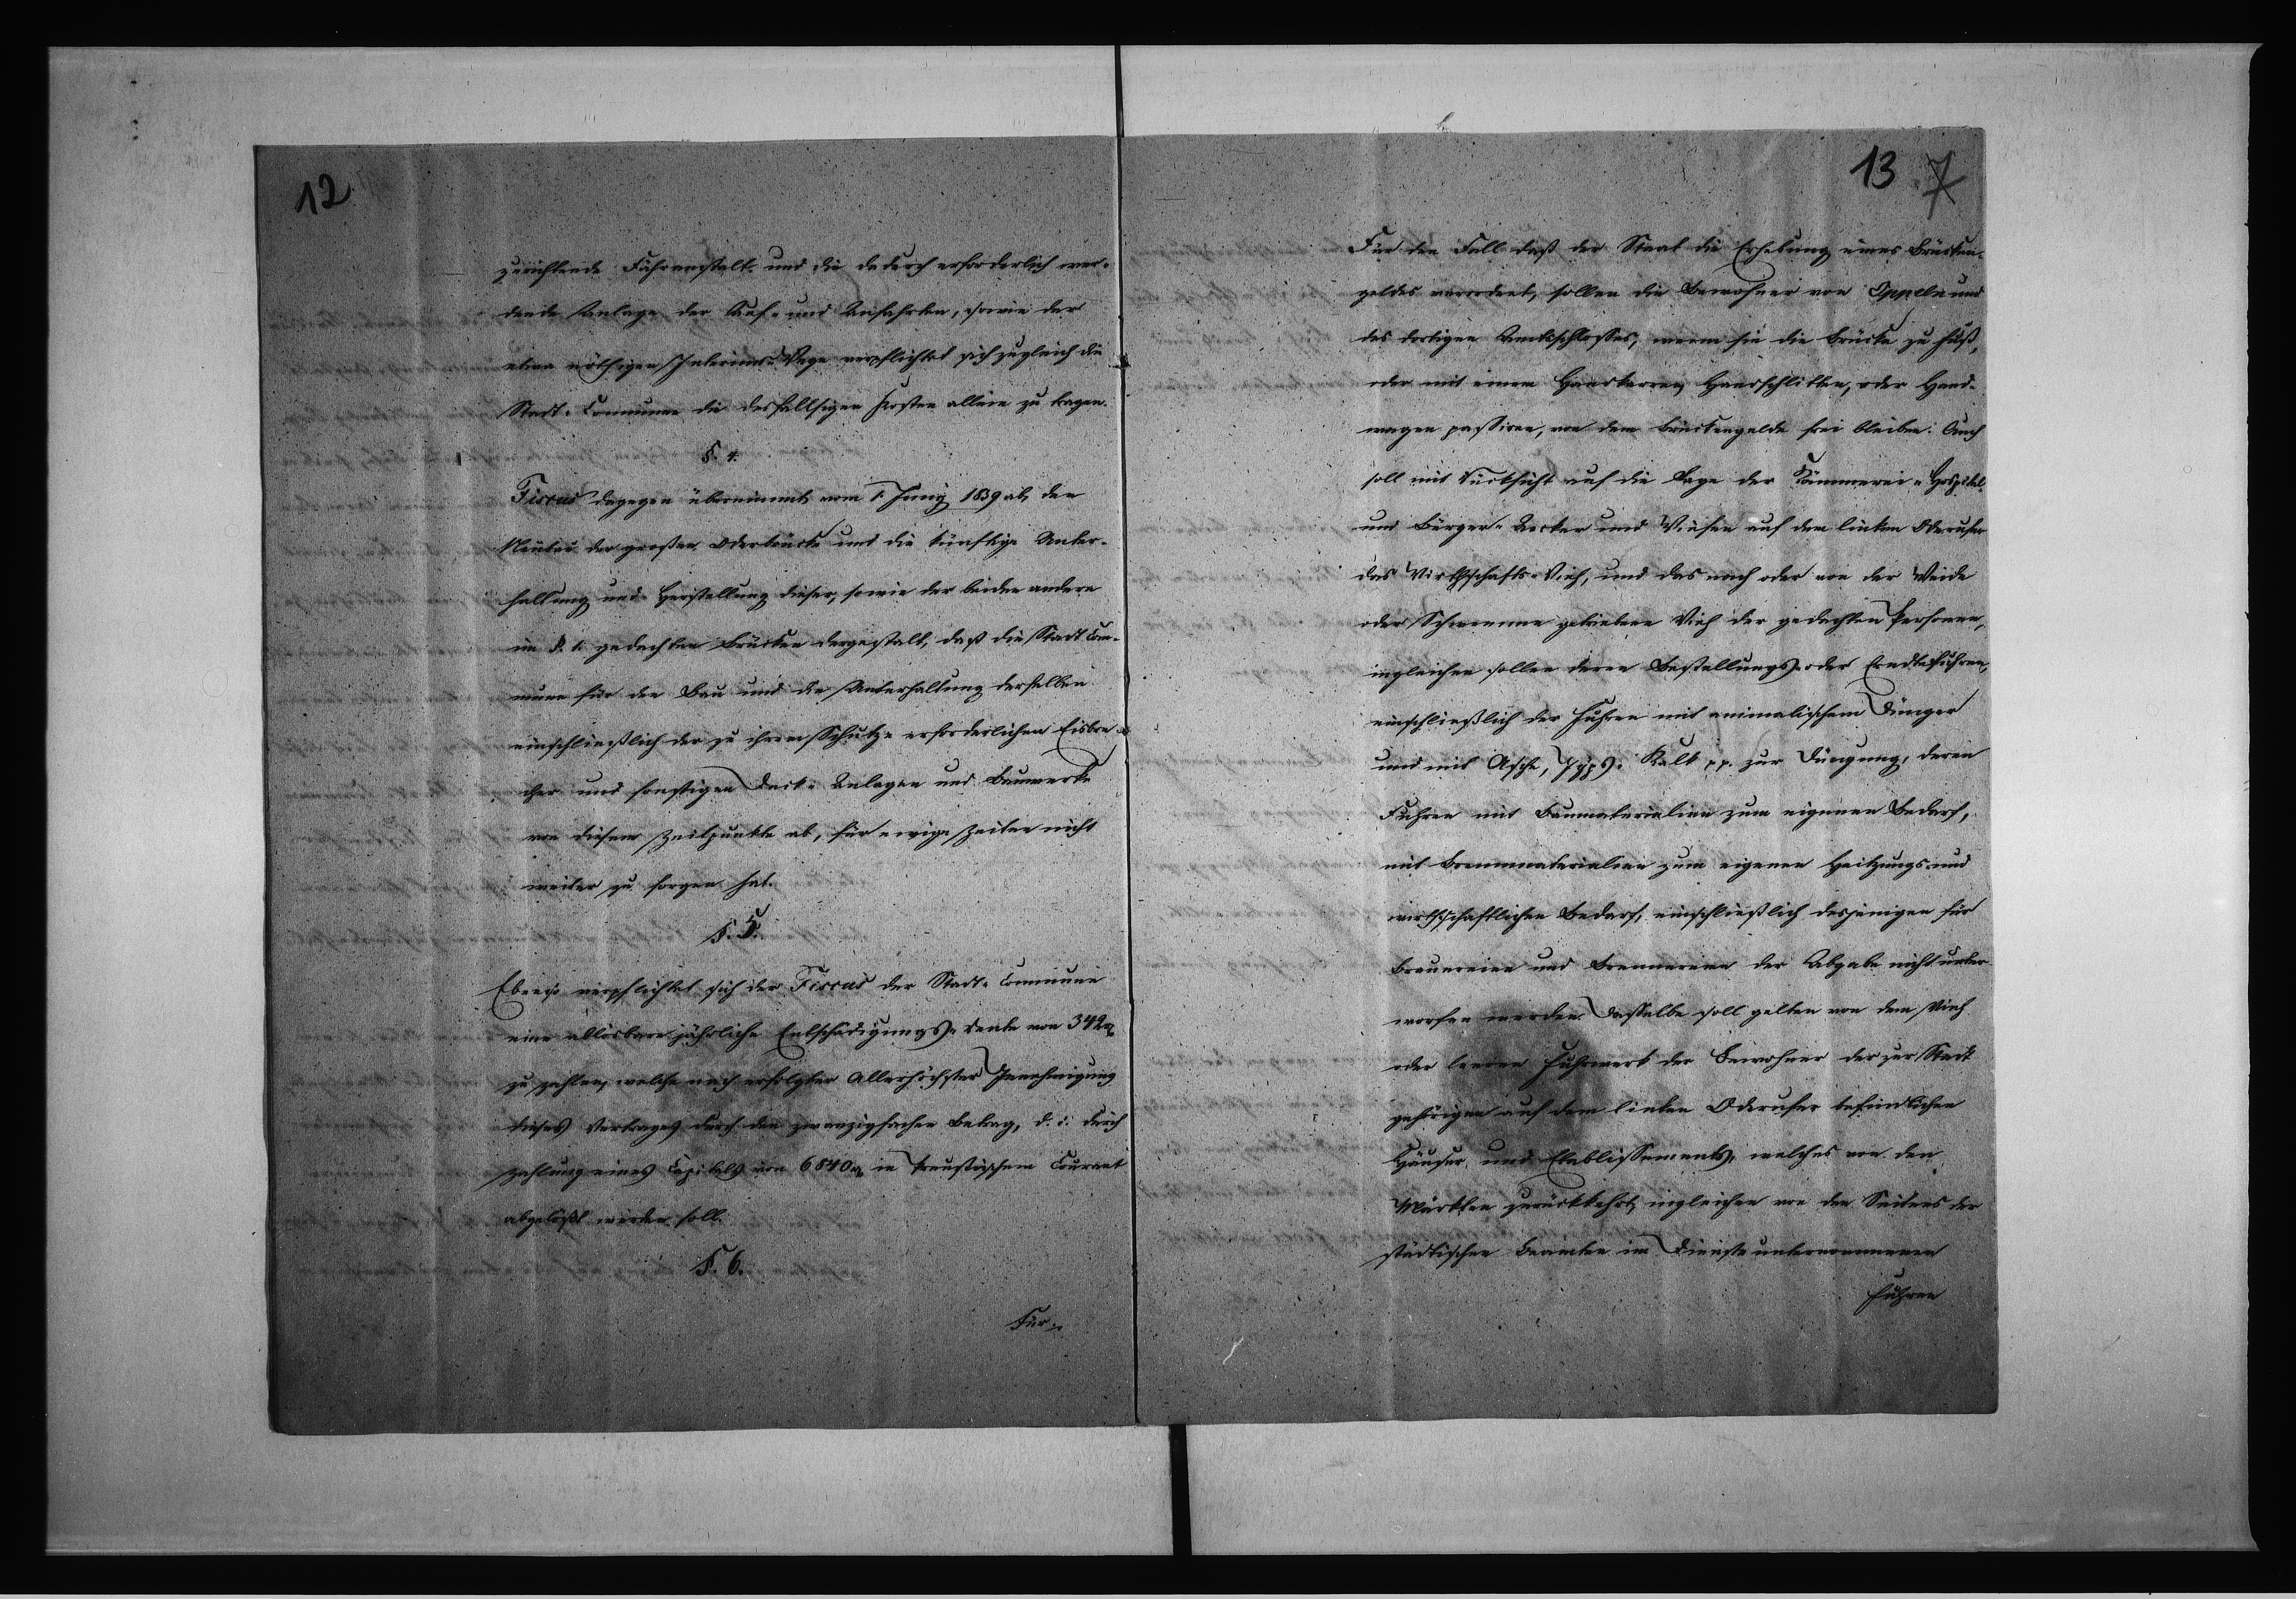 12
zurichtende Fähranstalt und die dadurch erforderlich wer-
dende Anlage der Auf- und Anfahrten, sowie der
etwa nöthigen Interims-Wege verpflichtet sich zugleich die
Stadt-Commune die desfallsigen Kosten allein zu tragen.
§. 4.
Fiscus dagegen übernimmt vom 1. Juny 1839 ab, den
Neubau der großen Oderbrücke und die künftige Unter-
haltung und Herstellung dieser, sowie der beiden andern
im §. 1. gedachten Brücken dergestalt, daß die Stadt Com-
mune für den Bau und die Unterhaltung derselben
einschließlich der zu ihrem Schutze erforderlichen Eisbre-
cher und sonstigen Deck-Anlagen und Bauwerke
von diesem Zeitpunkte ab, für ewige Zeiten nicht
weiter zu sorgen hat.
§. 5.
Ebenso verpflichtet sich der Fiscus der Stadt-Commune
eine ablösbare jährliche Entschädigungs-Rente von 342 rt
zu zahlen, welche nach erfolgter Allerhöchster Genehmigung
dieses Vertrages durch den zwanzigfachen Betrag, d. i. durch
Zahlung eines Capitals von 6840 rt in Preußischem Courant
abgelößt werden soll.
§. 6.
Für
13 7
Für den Fall daß der Staat die Erhebung eines Brücken-
geldes verordnet, sollen die Bewohner von Oppeln und
des dortigen Amtsschlosses, wenn sie die Brücke zu Fuß,
oder mit einem Handkarren, Handschlitten, oder Hand-
wagen passiren, von dem Brückengelde frei bleiben. Auch
soll mit Rücksicht auf die Lage der Kämmerei-Hospital-
und Bürger-Aecker und Wiesen auf dem linken Oderufer
das Wirthschafts-Vieh, und das nach oder von der Weide
oder Schwemme getriebene Vieh der gedachten Personen,
ingleichen sollen deren Bestellungs- oder Erndtefuhren,
einschließlich der Fuhren mit animalischem Dünger
und mit Asche, Gyps, Kalk pp. zur Düngung, deren
Fuhren mit Baumaterialien zum eigenen Bedarf,
mit Brennmaterialien zum eigenen Heitzungs- und
wirthschaftlichen Bedarf, einschließlich desjenigen für
Brauereien und Brennereien der Abgabe nicht unter-
worfen werden. Dasselbe soll gelten von dem Vieh
oder leeren Fuhrwerk der Bewohner der zur Stadt
gehörigen auf dem linken Oderufer befindlichen
Häuser und Etablissements, welches von den
Märkten zurückkehrt, ingleichen von den Seitens der
städtischen Beamten im Dienste unternommenen
Fuhren